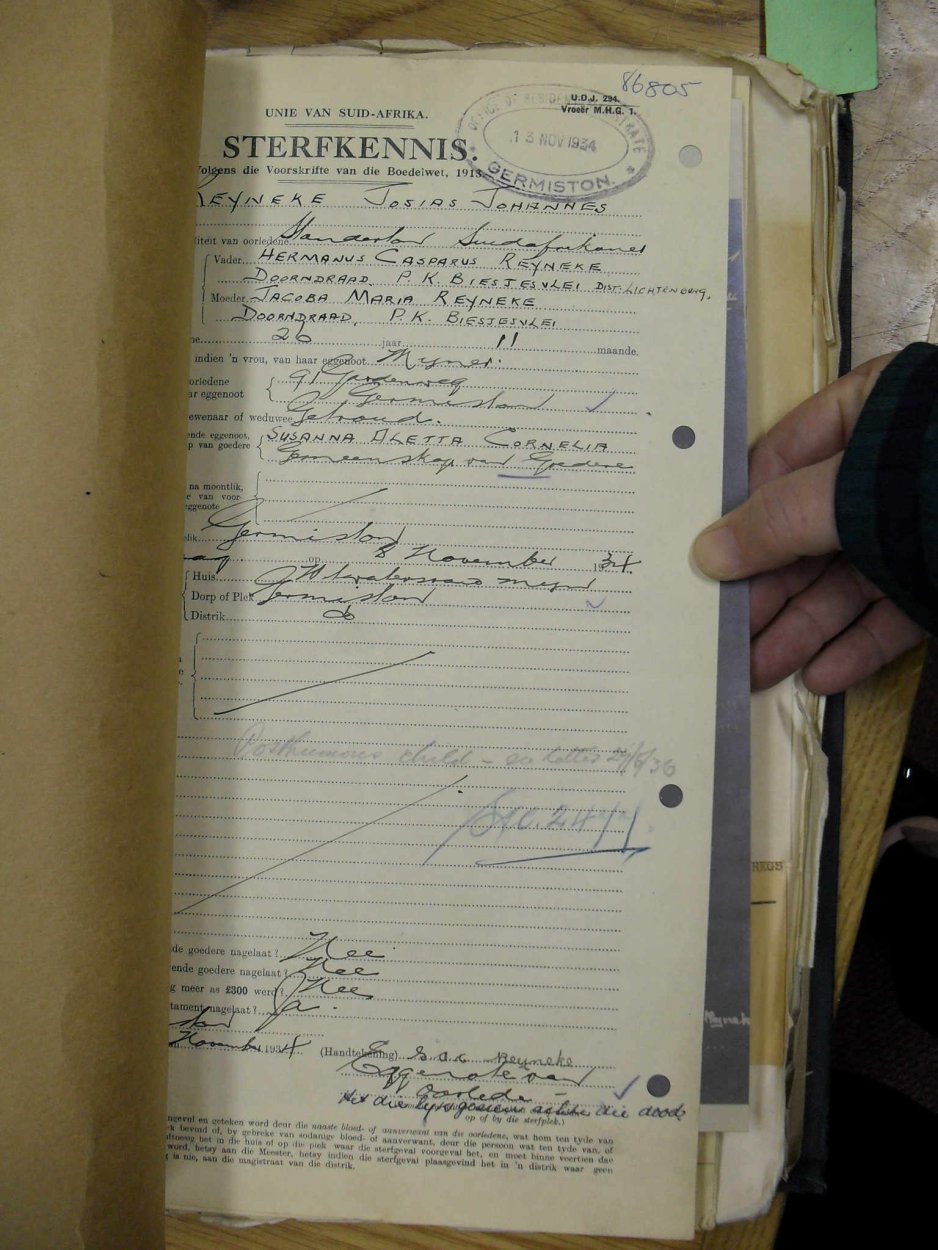 86805
U.D.J. 294.
Vroeër M.H.G. 1.
UNIE VAN SUID-AFRIKA.
OFFICE OF RESIDENT MAGISTRATE
13 NOV 1934
GERMISTON.
STERFKENNIS.
Volgens die Voorskrifte van die Boedelwet, 1913
REYNEKE JOSIAS JOHANNES
liteit van oorledene Standerton Suidafrikaner
Vader HERMANUS CASPARUS REYNEKE
DOORNDRAAD P.K. BIESJESVLEI DIST. LICHTENBURG.
Moeder JACOBA MARIA REYNEKE
DOORNDRAAD, P.K. BIESJESVLEI
jaar 11 maande.
indien 'n vrou, van haar eggenoot Myner.
oorledene 91
ar eggenoot Germiston
ewenaar of weduwee Getroud.
ende eggenoot, SUSANNA ALETTA CORNELIA
p van goedere Gemeenskap van Goedere
na moontlik,
e van voor-
eggenote
Germiston
elik
op 8 November 1934
Huis Witwatersrand Myn
Dorp of Plek Germiston
Distrik do
Posthumous child - see letter 24/6/36
de goedere nagelaat? Nee
ende goedere nagelaat? Nee
g meer as £300 werd? Nee
tament nagelaat? Ja.
ton
November 1934 (Handtekening) S.A.C. Reyneke
Eggenote van
oorlede
Het die lyk gesien achter die dood
op of by die sterfplek.)
ngeval en geteken word deur die naaste bloed- of aanverwant van die oorledene, wat hom ten tyde van
k bevind of, by gebreke van sodanige bloed- of aanverwant, deur die persoon wat ten tyde van, of
die huis of op die plek waar die sterfgeval voorgeval het, en moet binne veertien dae
word, hetsy aan die Meester, hetsy indien die sterfgeval plaasgevind het in 'n distrik waar geen
g is nie, aan die magistraat van die distrik.
REGS